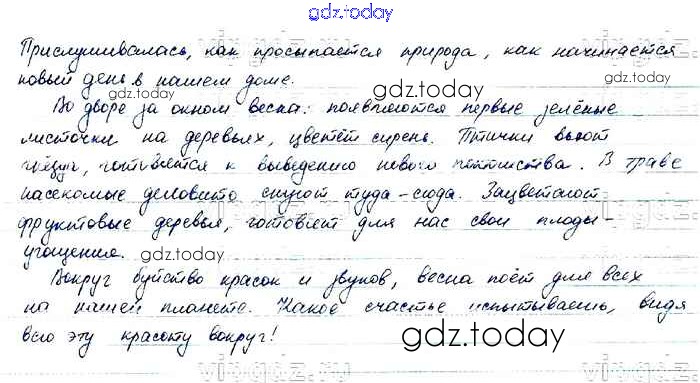 gdz.today
Прислушивалась, как просыпается природа, как начинается
новый день в нашем доме.
gdz.today
gdz.today
Во дворе за окном весна: появляются первые зелёные
листочки на деревьях, цветёт сирень. Птички вьют
гнёзда, готовятся к выведению нового потомства. В траве
насекомые деловито снуют туда-сюда. Зацветают
фруктовые деревья, готовят для нас свои плоды-
угощения.
gdz.today
gdz.today
Вокруг буйство красок и звуков, весна поёт для всех
на нашей планете. Какое счастье испытываешь, видя
всю эту красоту вокруг!
gdz.today